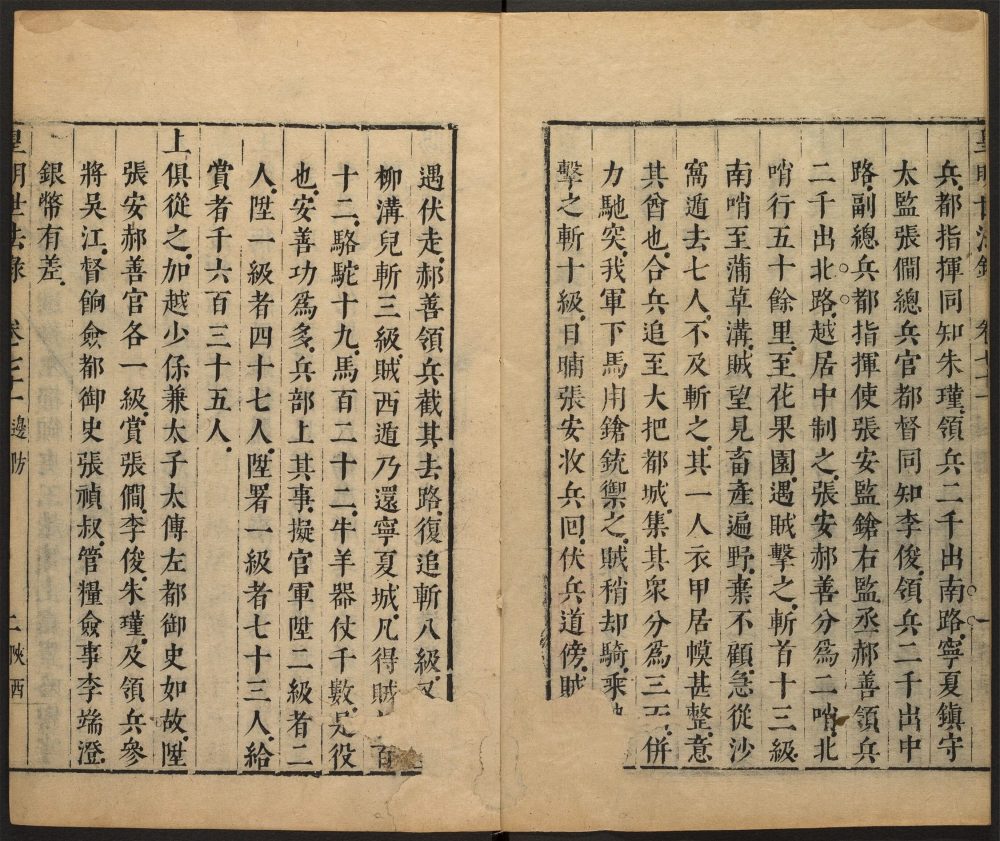 皇明世法錄 卷七十
兵都指揮同知朱瑾領兵二千出南路寧夏鎮守
太監張僩總兵官都督同知李俊領兵二千出中
路副總兵都指揮使張安監鎗右監丞郝善領兵
二千出北路越居中制之張安郝善分爲二哨北
哨行五十餘里至花果園遇賊擊之斬首十三級
南哨至蒲草溝賊望見畜產遍野棄不顧急從沙
窩遁去七人不及斬之其一人衣甲居幙甚整意
其酋也合兵追至大把都城集其衆分爲三 併
力馳突我軍下馬用鎗銃禦之賊稍却騎乘
擊之斬十級日晡張安收兵回伏兵道傍賊
遇伏走郝善領兵截其去路復追斬八級又
柳溝兒斬三級賊西遁乃還寧夏城凡得賊 百
十二駱駝十九馬百二十二牛羊器仗千數是役
也安善功爲多兵部上其事擬官軍陞二級者二
人陞一級者四十七人陞署一級者七十三人給
賞者千六百三十五人
上俱從之加越少保兼太子太傅左都御史如故陞
張安郝善官各一級賞張僩李俊朱瑾及領兵參
將吳江督餉僉都御史張禎叔管糧僉事李端澄
銀幣有差
皇明世法錄 卷七十 邊防 二 陝西